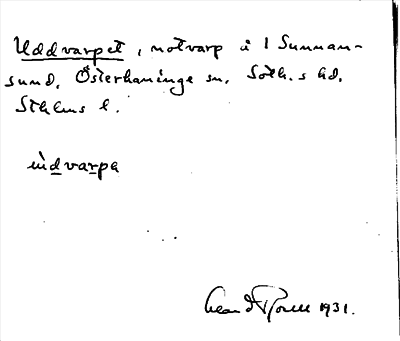 Uddvarpet, notvarp å 1 Sunnan-
sund, Österhaninge sn, Soth.s hd,
Sthlms l.
ùdvarpa
1931.